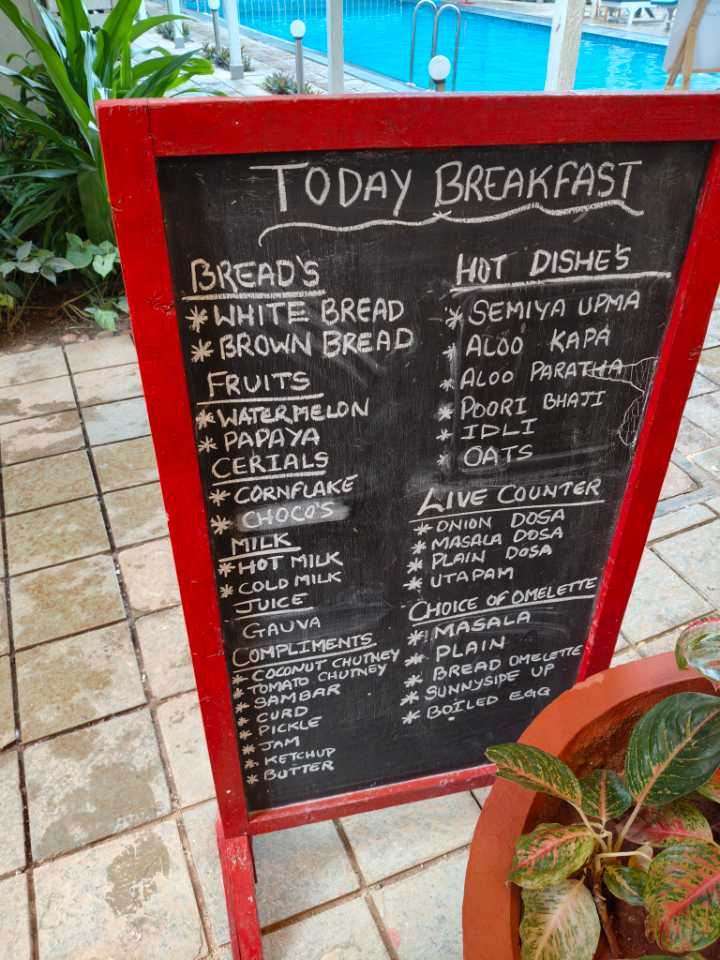 TODAY BREAKFAST
BREAD'S
* WHITE BREAD
* BROWN BREAD
FRUITS
* WATERMELON
* PAPAYA
CERIALS
* CORNFLAKE
* CHOCO'S
MILK
* HOT MILK
* COLD MILK
JUICE
GAUVA
COMPLIMENTS
* COCONUT CHUTNEY
* TOMATO CHUTNEY
* SAMBAR
* CURD
* PICKLE
* JAM
* KETCHUP
* BUTTER
HOT DISHE'S
* SEMIYA UPMA
* ALOO KAPA
* ALOO PARATHA
* POORI BHAJI
* IDLI
* OATS
LIVE COUNTER
* ONION DOSA
* MASALA DOSA
* PLAIN DOSA
* UTAPAM
CHOICE OF OMELETTE
* MASALA
* PLAIN
* BREAD OMELETTE
* SUNNYSIDE UP
* BOILED EGG